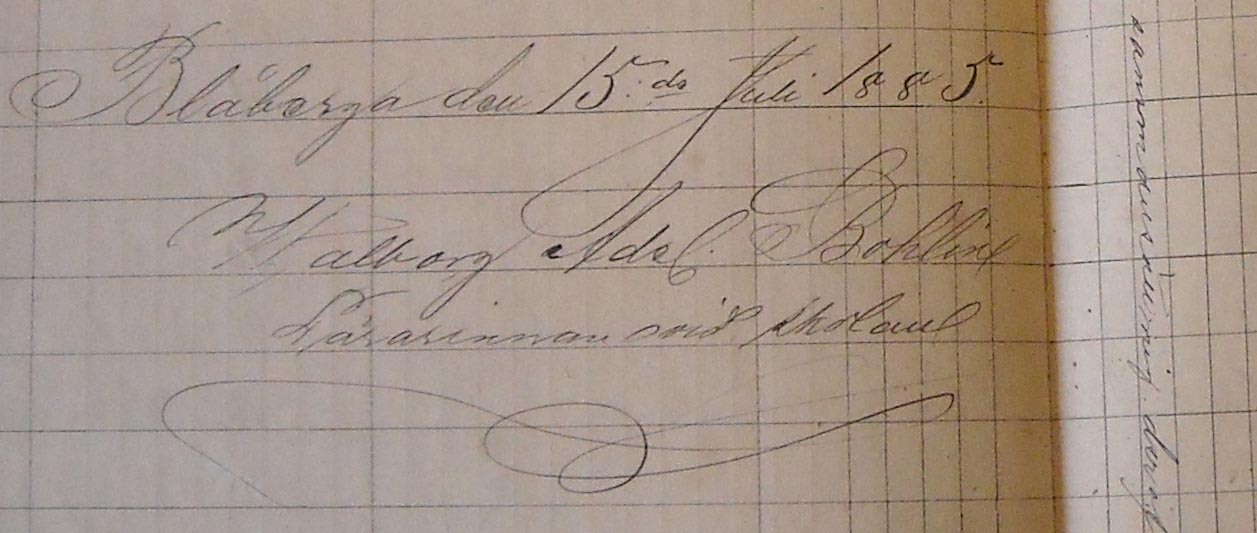 Blåberga den 15.de Juli 1885.
Walborg Adel. Bohlin
Lärarinnan vid skolan